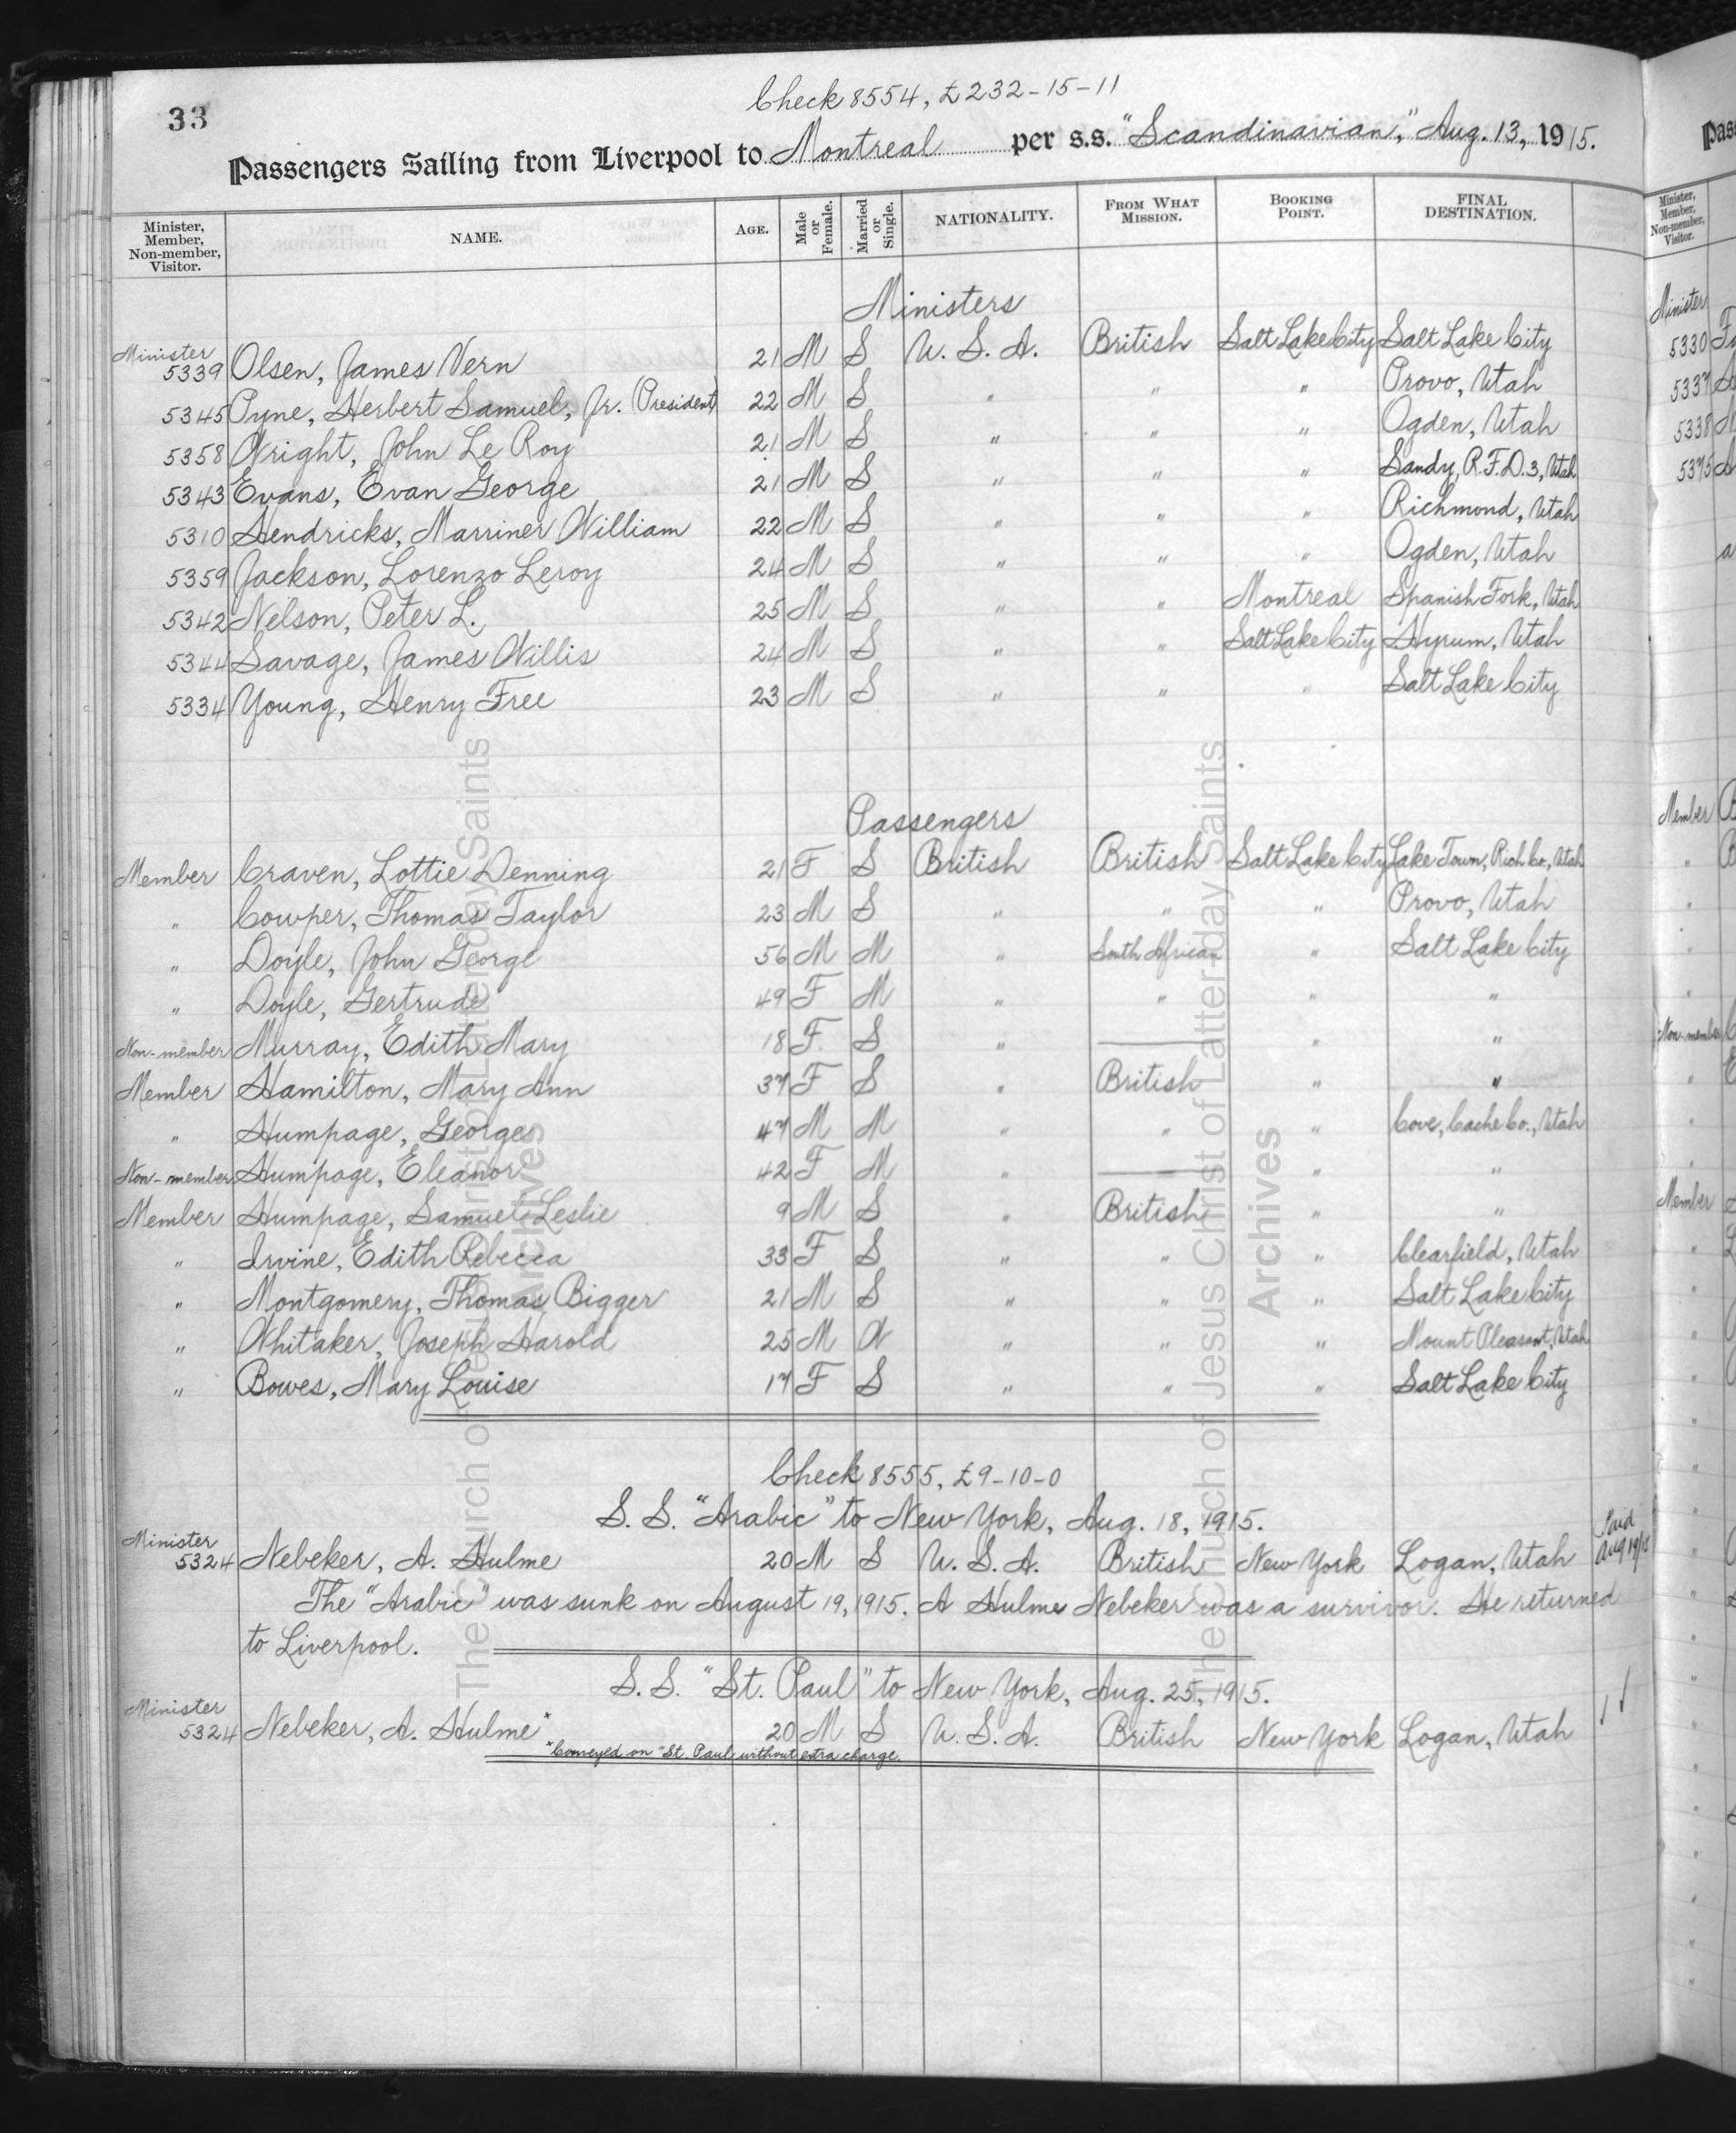 33
Check 8554, £232-15-11
Passengers Sailing from Liverpool to Montreal per s.s. "Scandinavian," Aug. 13, 1915.
Minister, Member, Non-member, Visitor. NAME. AGE. Male or Female. Married or Single. NATIONALITY. FROM WHAT MISSION. BOOKING POINT. FINAL DESTINATION.
Ministers
Minister 5339 Olsen, James Vern 21 M S U. S. A. British Salt Lake City Salt Lake City
5345 Pyne, Herbert Samuel, Jr. President 22 M S " " " Provo, Utah
5358 Wright, John Le Roy 21 M S " " " Ogden, Utah
5343 Evans, Evan George 21 M S " " " Sandy, R.F.D. 3, Utah
5310 Hendricks, Marriner William 22 M S " " " Richmond, Utah
5359 Jackson, Lorenzo Leroy 24 M S " " " Ogden, Utah
5342 Nelson, Peter L. 25 M S " " Montreal Spanish Fork, Utah
5344 Savage, James Willis 24 M S " " Salt Lake City Hyrum, Utah
5334 Young, Henry Free 23 M S " " " Salt Lake City
Passengers
Member Craven, Lottie Denning 21 F S British British Salt Lake City Lake Town, Rich Co., Utah
" Cowper, Thomas Taylor 23 M S " " " Provo, Utah
" Doyle, John George 56 M M " South African " Salt Lake City
" Doyle, Gertrude 49 F M " " " "
Non-member Murray, Edith Mary 18 F S " — " "
Member Hamilton, Mary Ann 37 F S " British " "
" Humpage, George 47 M M " " " Cove, Cache Co., Utah
Non-member Humpage, Eleanor 42 F M " — " "
Member Humpage, Samuel Leslie 9 M S " British " "
" Irvine, Edith Rebecca 33 F S " " " Clearfield, Utah
" Montgomery, Thomas Bigger 21 M S " " " Salt Lake City
" Whitaker, Joseph Harold 25 M W " " " Mount Pleasant, Utah
" Bowes, Mary Louise 17 F S " " " Salt Lake City
Check 8555, £9-10-0
S. S. "Arabic" to New York, Aug. 18, 1915.
Minister 5324 Nebeker, A. Hulme 20 M S U. S. A. British New York Logan, Utah Paid Aug 19/15
The "Arabic" was sunk on August 19, 1915. A Hulme Nebeker was a survivor. He returned
to Liverpool.
S. S. "St. Paul" to New York, Aug. 25, 1915.
Minister 5324 Nebeker, A. Hulme* 20 M S U. S. A. British New York Logan, Utah
*Conveyed on "St. Paul without extra charge.
The Church of Jesus Christ of Latter-day Saints
Archives
The Church of Jesus Christ of Latter-day Saints
Archives
Pass
Minister, Member, Non-member, Visitor.
Minister
5330
5337
5338
5375
Member
Non-member
Member